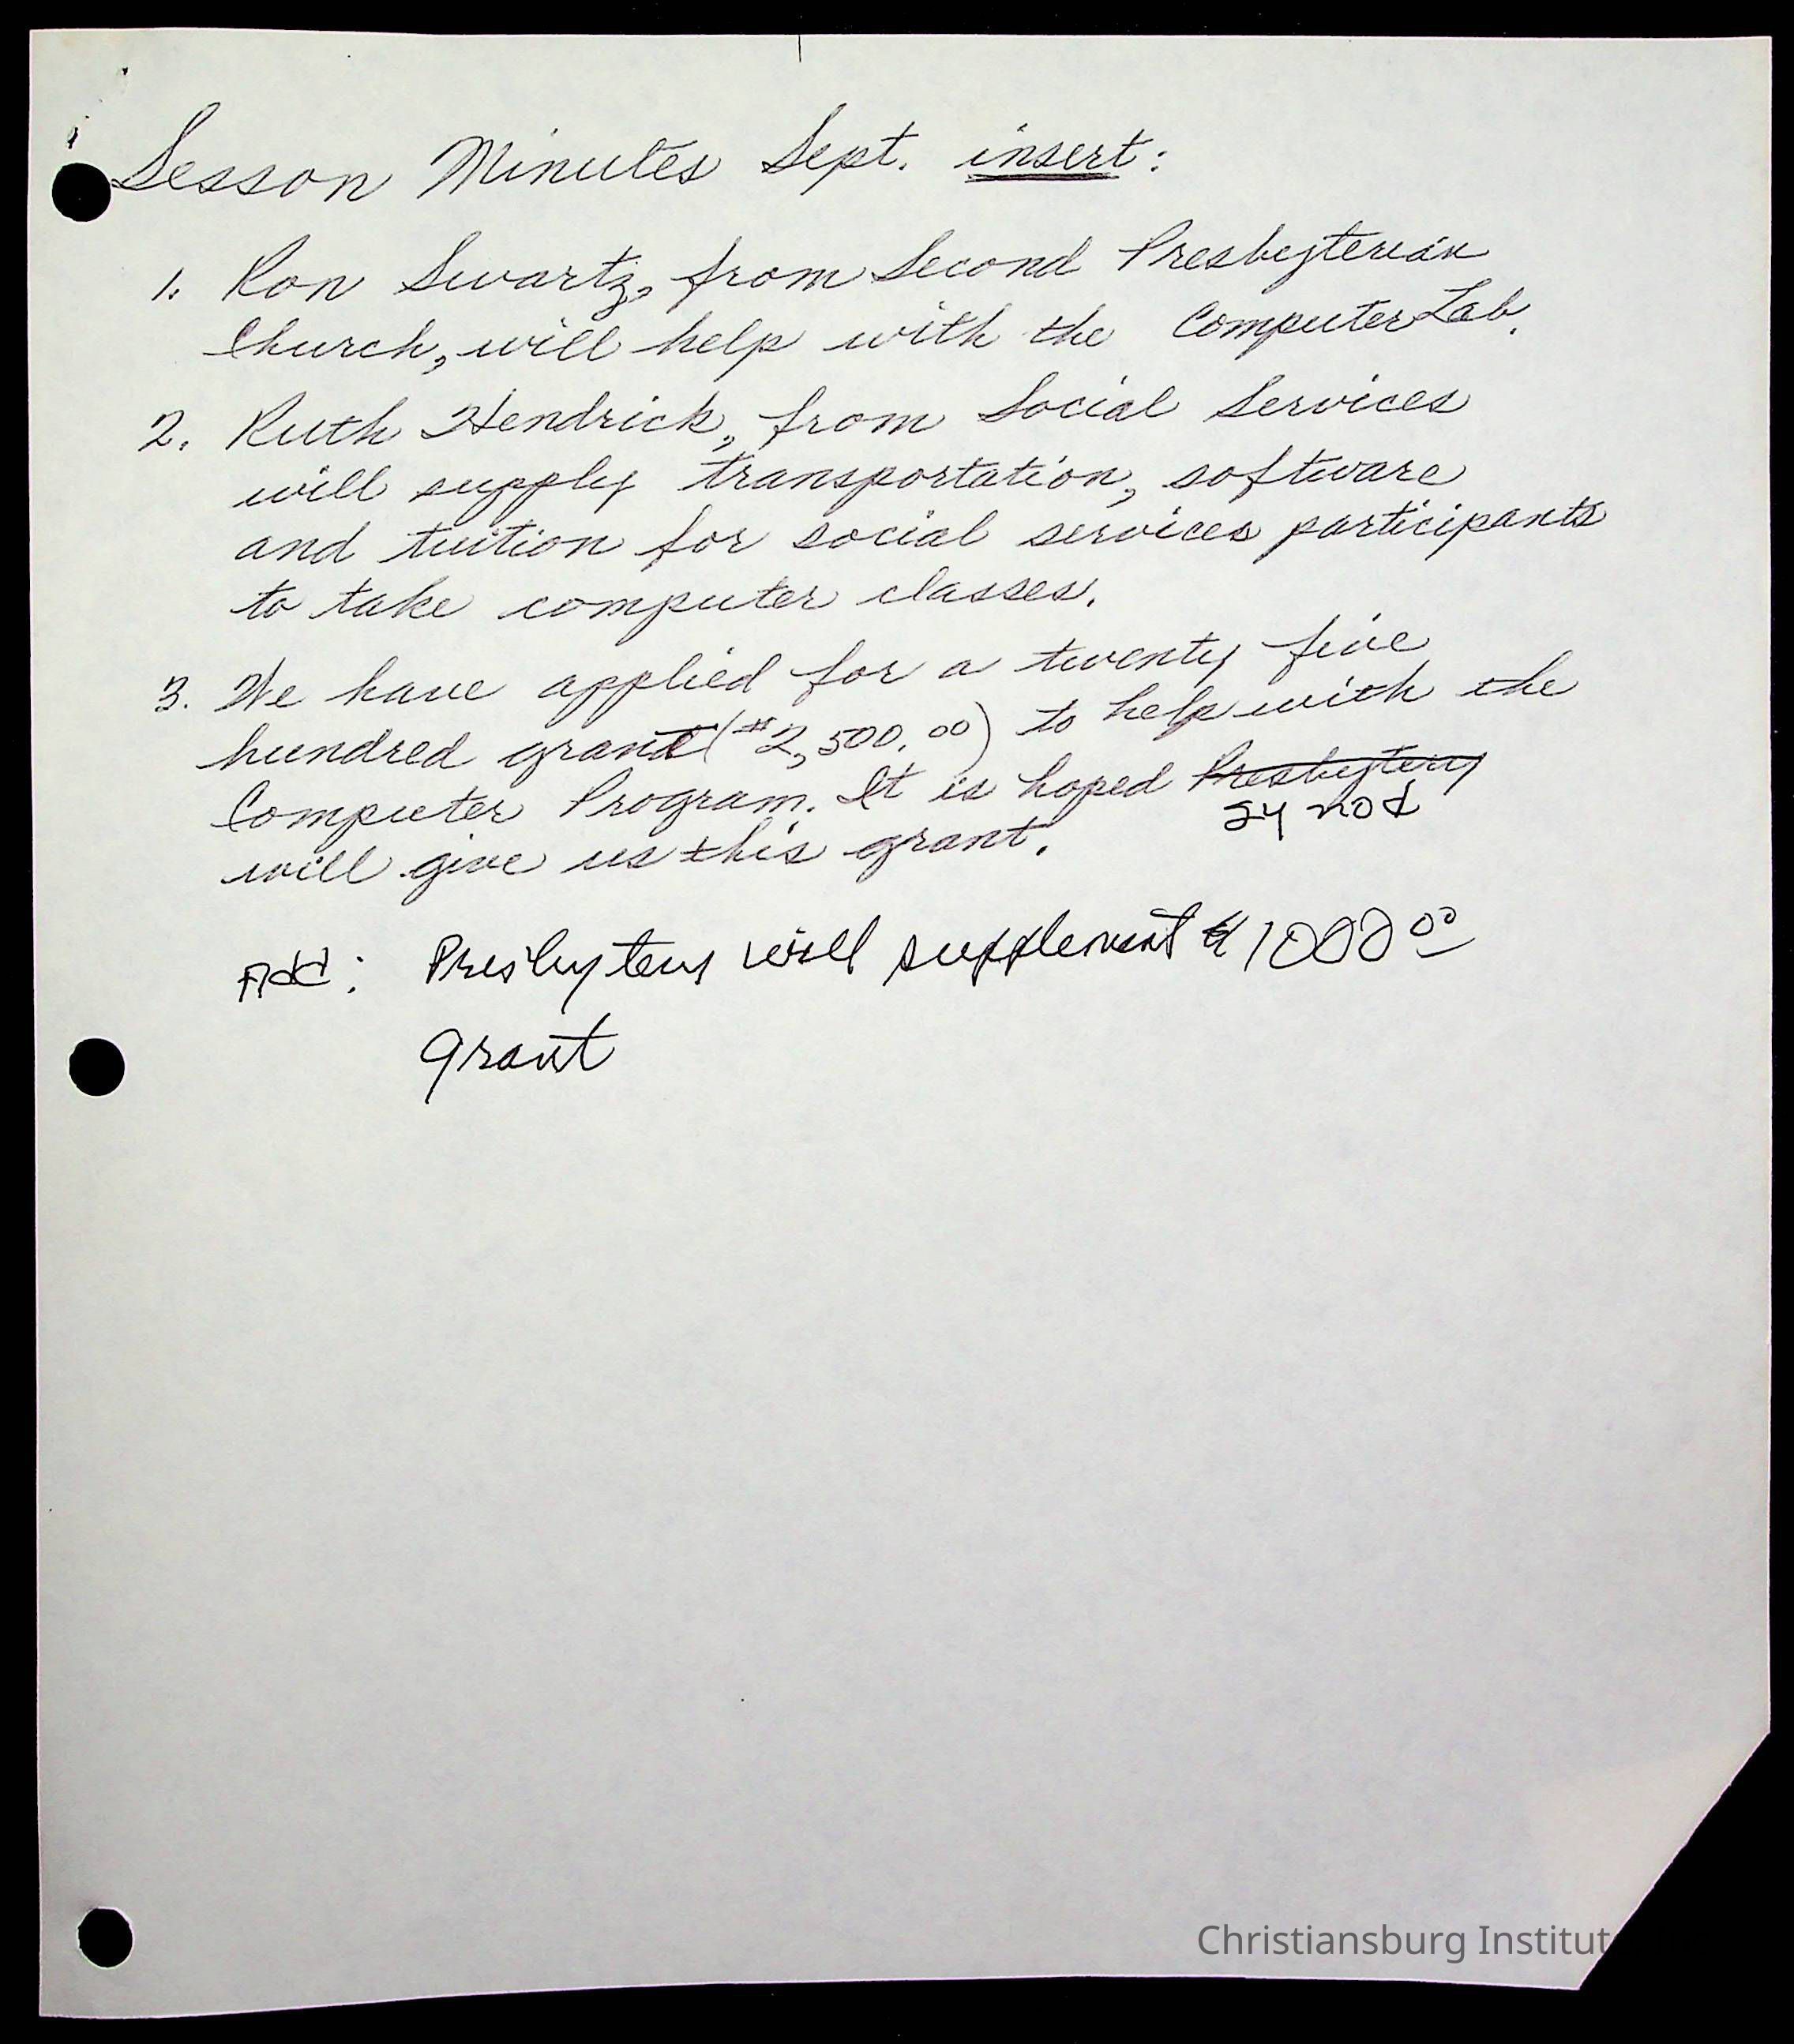 Sesson Minutes Sept. insert:
1. Ron Swartz, from Second Presbyterian
Church, will help with the Computer Lab.
2. Ruth Hendrick, from Social Services
will supply transportation, software
and tuition for social services participants
to take computer classes.
3. We have applied for a twenty five
hundred grant ($2,500.00) to help with the
Computer Program. It is hoped Presbytery
synod
will give us this grant.
Add: Presbytery will supplement $1000.00
grant
Christiansburg Institut